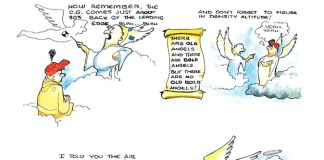 NOW REMEMBER, THE
C.G. COMES JUST ABOUT
30% BACK OF THE LEADING
EDGE
THERE
ARE OLD
ANGELS
AND THERE
ARE BOLD
ANGELS
BUT THERE
ARE NO
OLD BOLD
ANGELS!
AND DON'T FORGET TO FIGURE
IN DENSITY ALTITUDE!
YEAH,
YEAH.
I TOLD YOU THE AIR